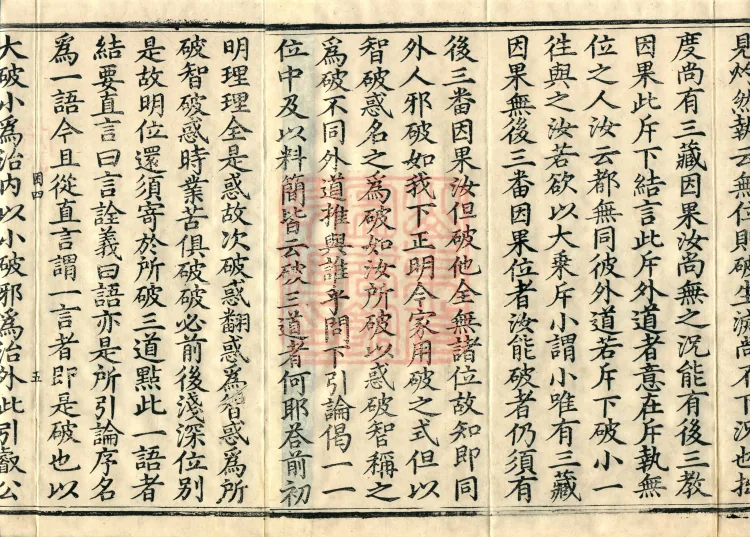 見灼然執云無位則破生滅尚不下況也拙
度尚有三藏因果汝尚無之況能有後三教
因果此斥下結言此斥外道者意在斥執無
位之人汝云都無同彼外道若斥下破小一
徃與之汝若欲以大乗斥小謂小唯有三藏
因果無後三番因果位者汝能破者仍須有
後三番因果汝但破他全無諸位故知即同
外人邪破如我下正明今家用破之式但以
智破惑名之為破如汝所破以惑破智稱之
爲破不同外道推與誰乎問下引論偈一一
位中及以料簡皆云破三道者何耶答前初
明理理全是惑故次破惑翻惑爲智惑爲所
破智破惑時業苦俱破破必前後淺深位別
是故明位還須寄於所破三道點此一語者
結要直言曰言詮義曰語亦是所引論序名
爲一語今且從直言謂一言者即是破也以
困四
五
大破小爲治内以小破邪爲治外此引叡公